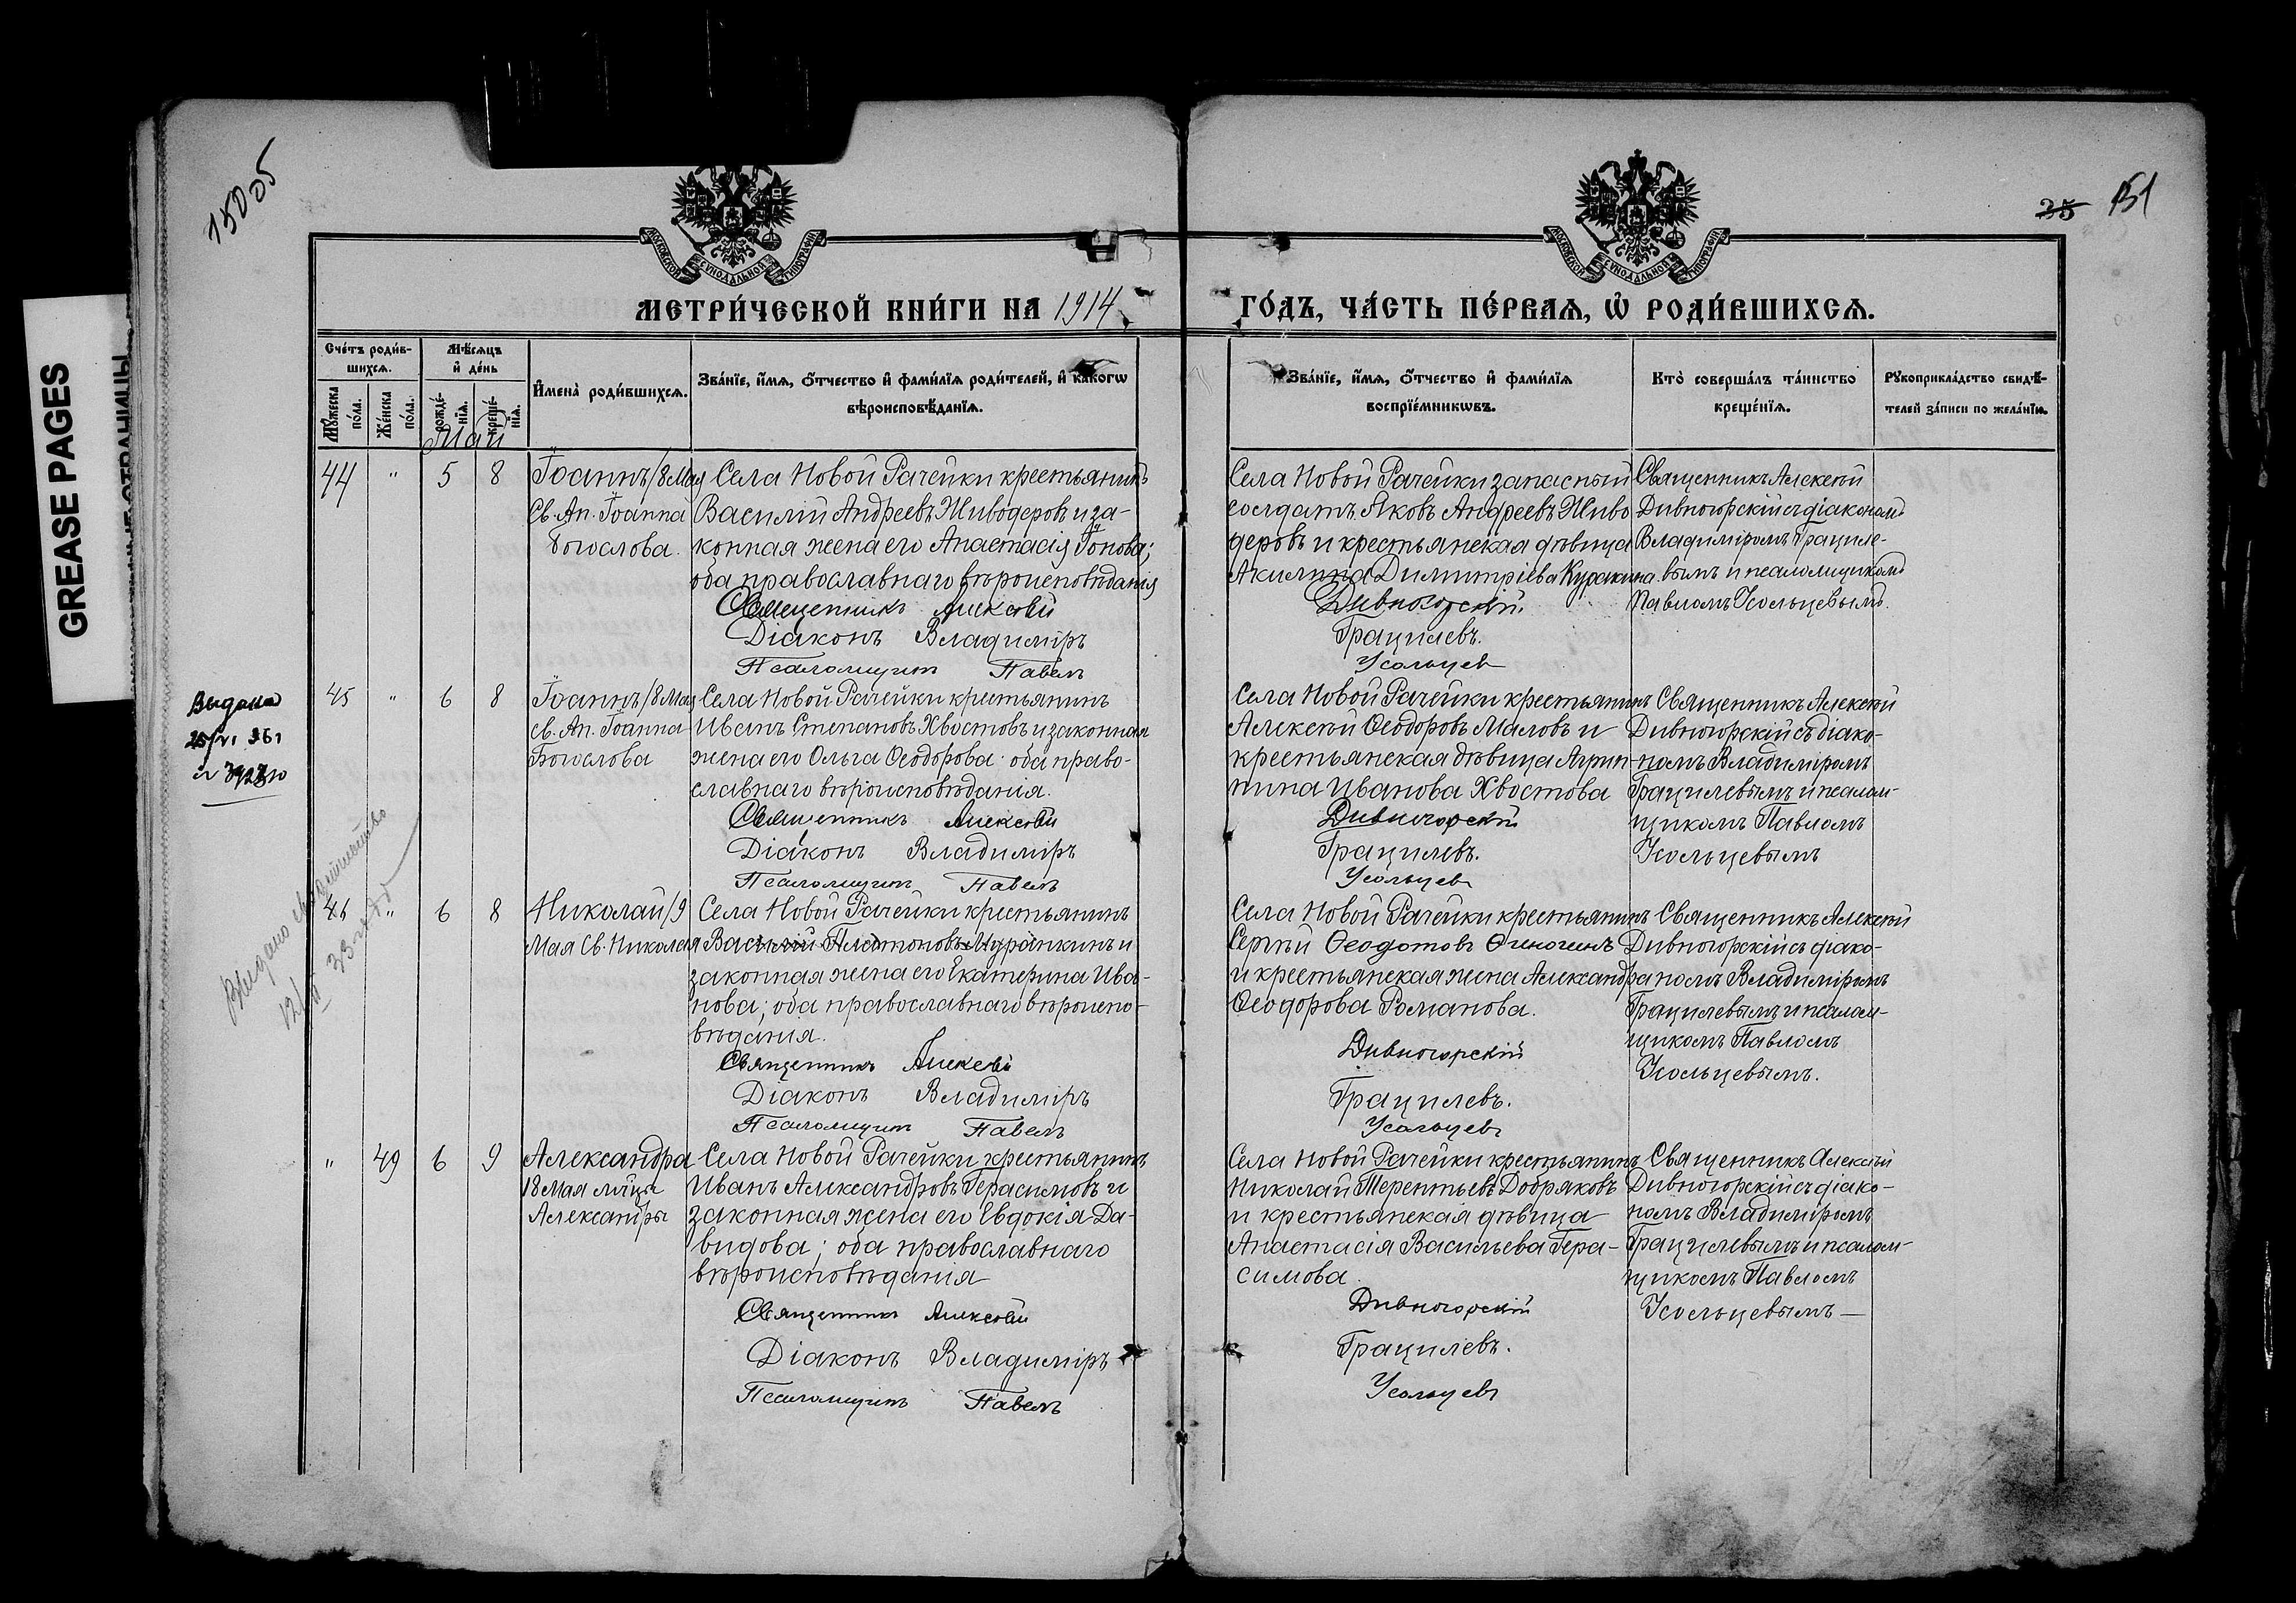 GREASE PAGES
15005
35 151
МОСКОВСКОЙ СУНОДАЛЬНОЙ ТИПОГРАФІИ
МОСКОВСКОЙ СУНОДАЛЬНОЙ ТИПОГРАФІИ
МЕТРИ́ЧЕСКОЙ КНИ́ГИ НА 1914
ГО́ДЪ, ЧА́СТЬ ПЕ́РВАѦ, Ѡ҆ РОДИ́ВШИХСѦ.
Сче́тъ роди́в-
шихсѧ.
Мꙋ́жеска
по́ла.
Же́нска
по́ла.
Мѣ́сѧцъ
и҆ де́нь
рожде́-
нїѧ.
креще́-
нїѧ.
И҆мена̀ роди́вшихсѧ.
Зва́нїе, и҆́мѧ, ѻ҆́тчество и҆ фами́лїѧ роди́телей, и҆ како́гѡ
вѣроисповѣ́данїѧ.
Зва́нїе, и҆́мѧ, ѻ҆́тчество и҆ фами́лїѧ
воспрїе́мникѡвъ.
Кто̀ соверша́лъ та́инство
креще́нїѧ.
Рꙋкоприкла́дство свидѣ́-
телей за́писи по жела́нїю.
Май
44 " 5 8
Іоаннъ/8 Мая
Св. Ап. Іоанна
Богослова.
Села Новой Рачейки крестьянинъ
Василій Андреевъ Живодеровъ и за-
конная жена его Анастасія Іонова;
оба православнаго вѣроисповѣданія
Священникъ Алексѣй
Діаконъ Владиміръ
Псаломщикъ Павелъ
Села Новой Рачейки запасный
солдатъ Яковъ Андреевъ Живо
деровъ и крестьянская дѣвица
Акилина Димитріева Куракина.
Дивногорскій.
Грацилевъ.
Усольцев
Священникъ Алексѣй
Дивногорскій съ діакономъ
Владиміромъ Грациле-
вымъ и псаломщикомъ
Павломъ Усольцевымъ.
Выдана
45 " 6 8
Іоаннъ/8 Мая
св. Ап. Іоанна
Богослова
Села Новой Рачейки крестьянинъ
Иванъ Степановъ Хвостовъ и законная
жена его Ольга Ѳеодорова: оба право-
славнаго вѣроисповѣданія.
Священникъ Алексѣй
Діаконъ Владиміръ
Псаломщикъ Павелъ
Села Новой Рачейки крестьянинъ
Алексѣй Ѳеодоровъ Маловъ и
крестьянская дѣвица Агрип-
пина Иванова Хвостова
Дивногорскій
Грацилевъ.
Усольцев
Священникъ Алексѣй
Дивногорскій съ діако-
номъ Владиміромъ
Грацилевымъ и псалом-
щикомъ Павломъ
Усольцевымъ
Выдано свидѣтельство
46 " 6 8
Николай/9
Мая Св. Николая
Села Новой Рачейки крестьянинъ
Василій Платоновъ Муранкинъ и
законная жена его Екатерина Ива-
нова; оба православнаго вѣроиспо-
вѣданія.
Священникъ Алексѣй
Діаконъ Владиміръ
Псаломщикъ Павелъ
Села Новой Рачейки крестьянинъ
Сергѣй Ѳеодотовъ
и крестьянская жена Александра
Ѳеодорова Романова.
Дивногорскій
Грацилевъ.
Усольцевъ
Священникъ Алексѣй
Дивногорскій съ діако-
номъ Владиміромъ
Грацилевымъ и псалом-
щикомъ Павломъ
Усольцевымъ.
" 49 6 9
Александра
18 Мая мч̃цы
Александры
Села Новой Рачейки крестьянинъ
Иванъ Александровъ Герасимовъ и
законная жена его Евдокія Да-
видова; оба православнаго
вѣроисповѣданія
Священникъ Алексѣй
Діаконъ Владиміръ
Псаломщикъ Павелъ
Села Новой Рачейки крестьянинъ
Николай Терентьевъ Добряковъ
и крестьянская дѣвица
Анастасія Васильева Гера-
симова.
Дивногорскій
Грацилевъ.
Усольцевъ
Священникъ Алексѣй
Дивногорскій съ діако-
номъ Владиміромъ
Грацилевымъ и псалом-
щикомъ Павломъ
Усольцевымъ—